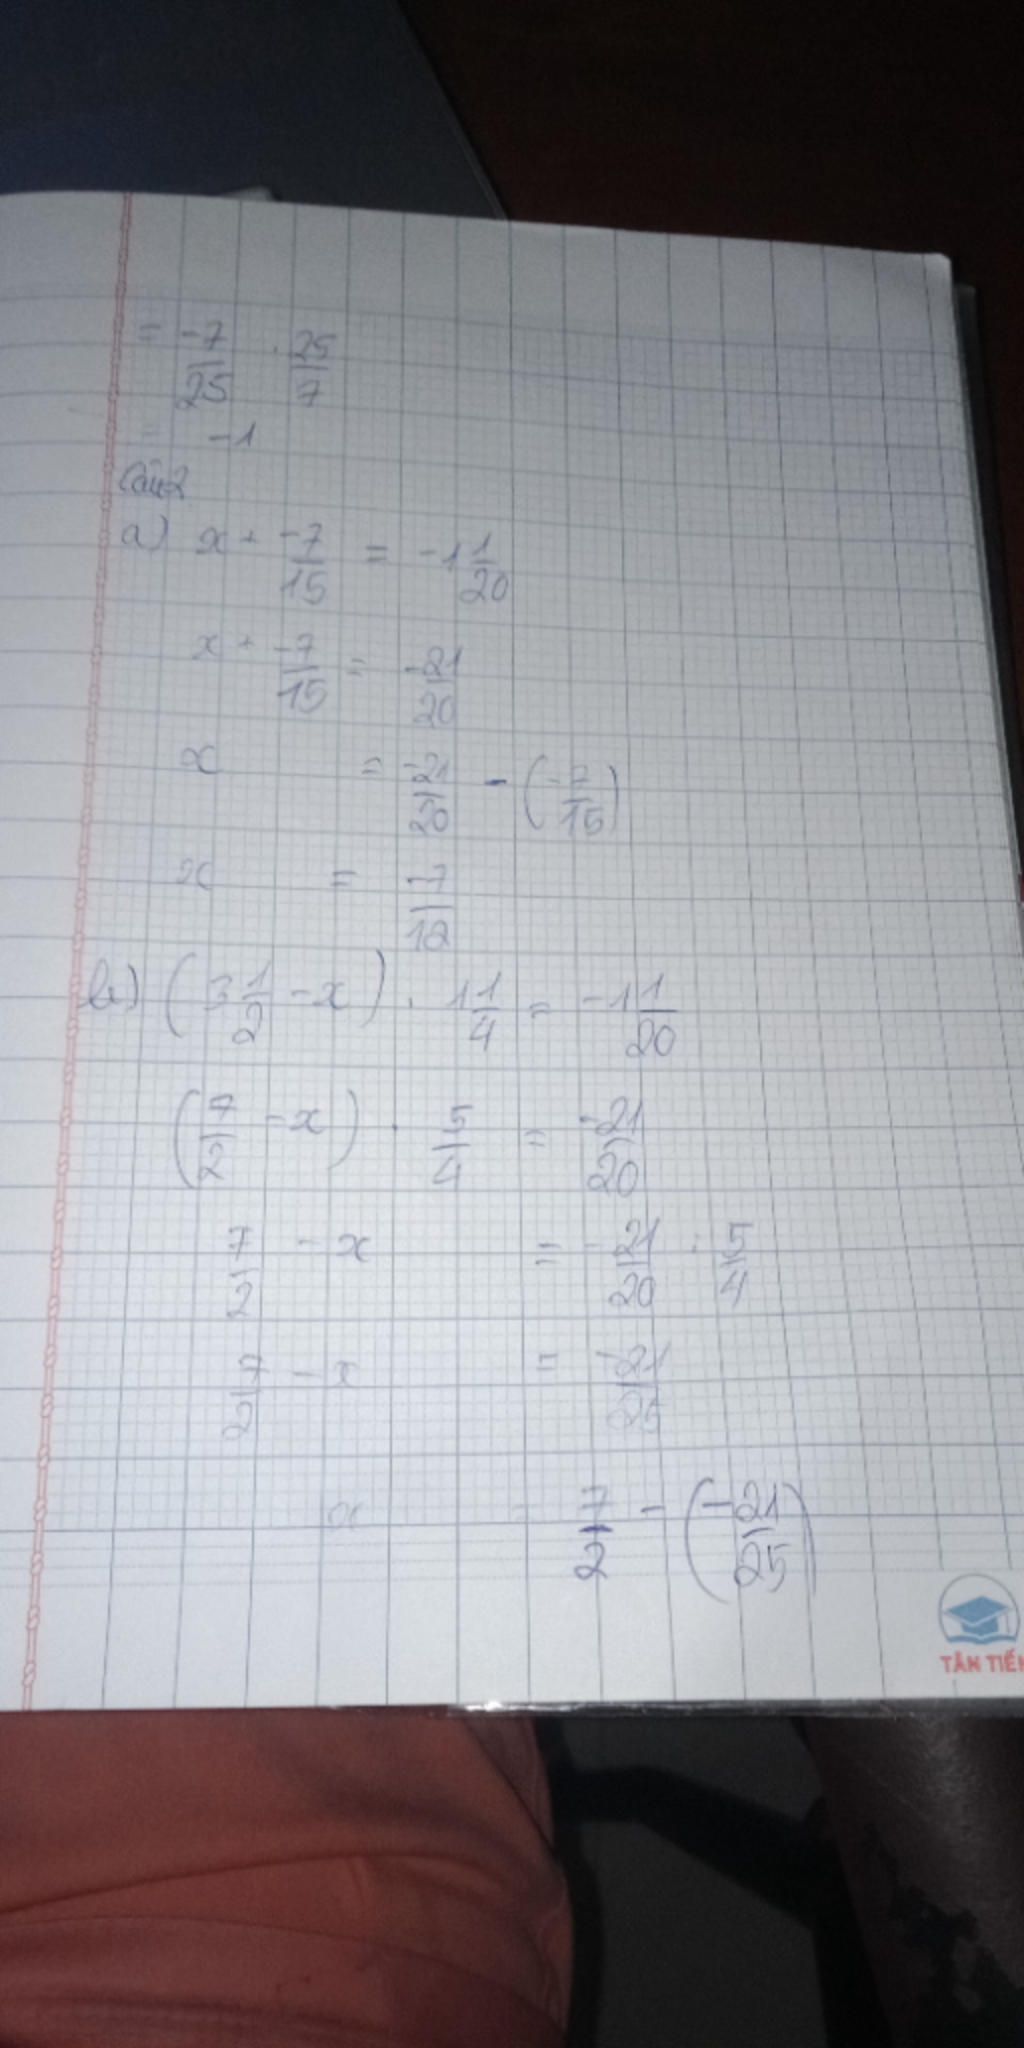 = -7/25 . 25/7
= -1
Câu 2
a) x + -7/15 = -1 1/20
x + -7/15 = -21/20
x = -21/20 - (-7/15)
x = -7/12
b) (3 1/2 - x) . 1 1/4 = -1 1/20
(7/2 - x) . 5/4 = -21/20
7/2 - x = -21/20 : 5/4
7/2 - x = -21/25
x = 7/2 - (-21/25)
TÂN TIẾN